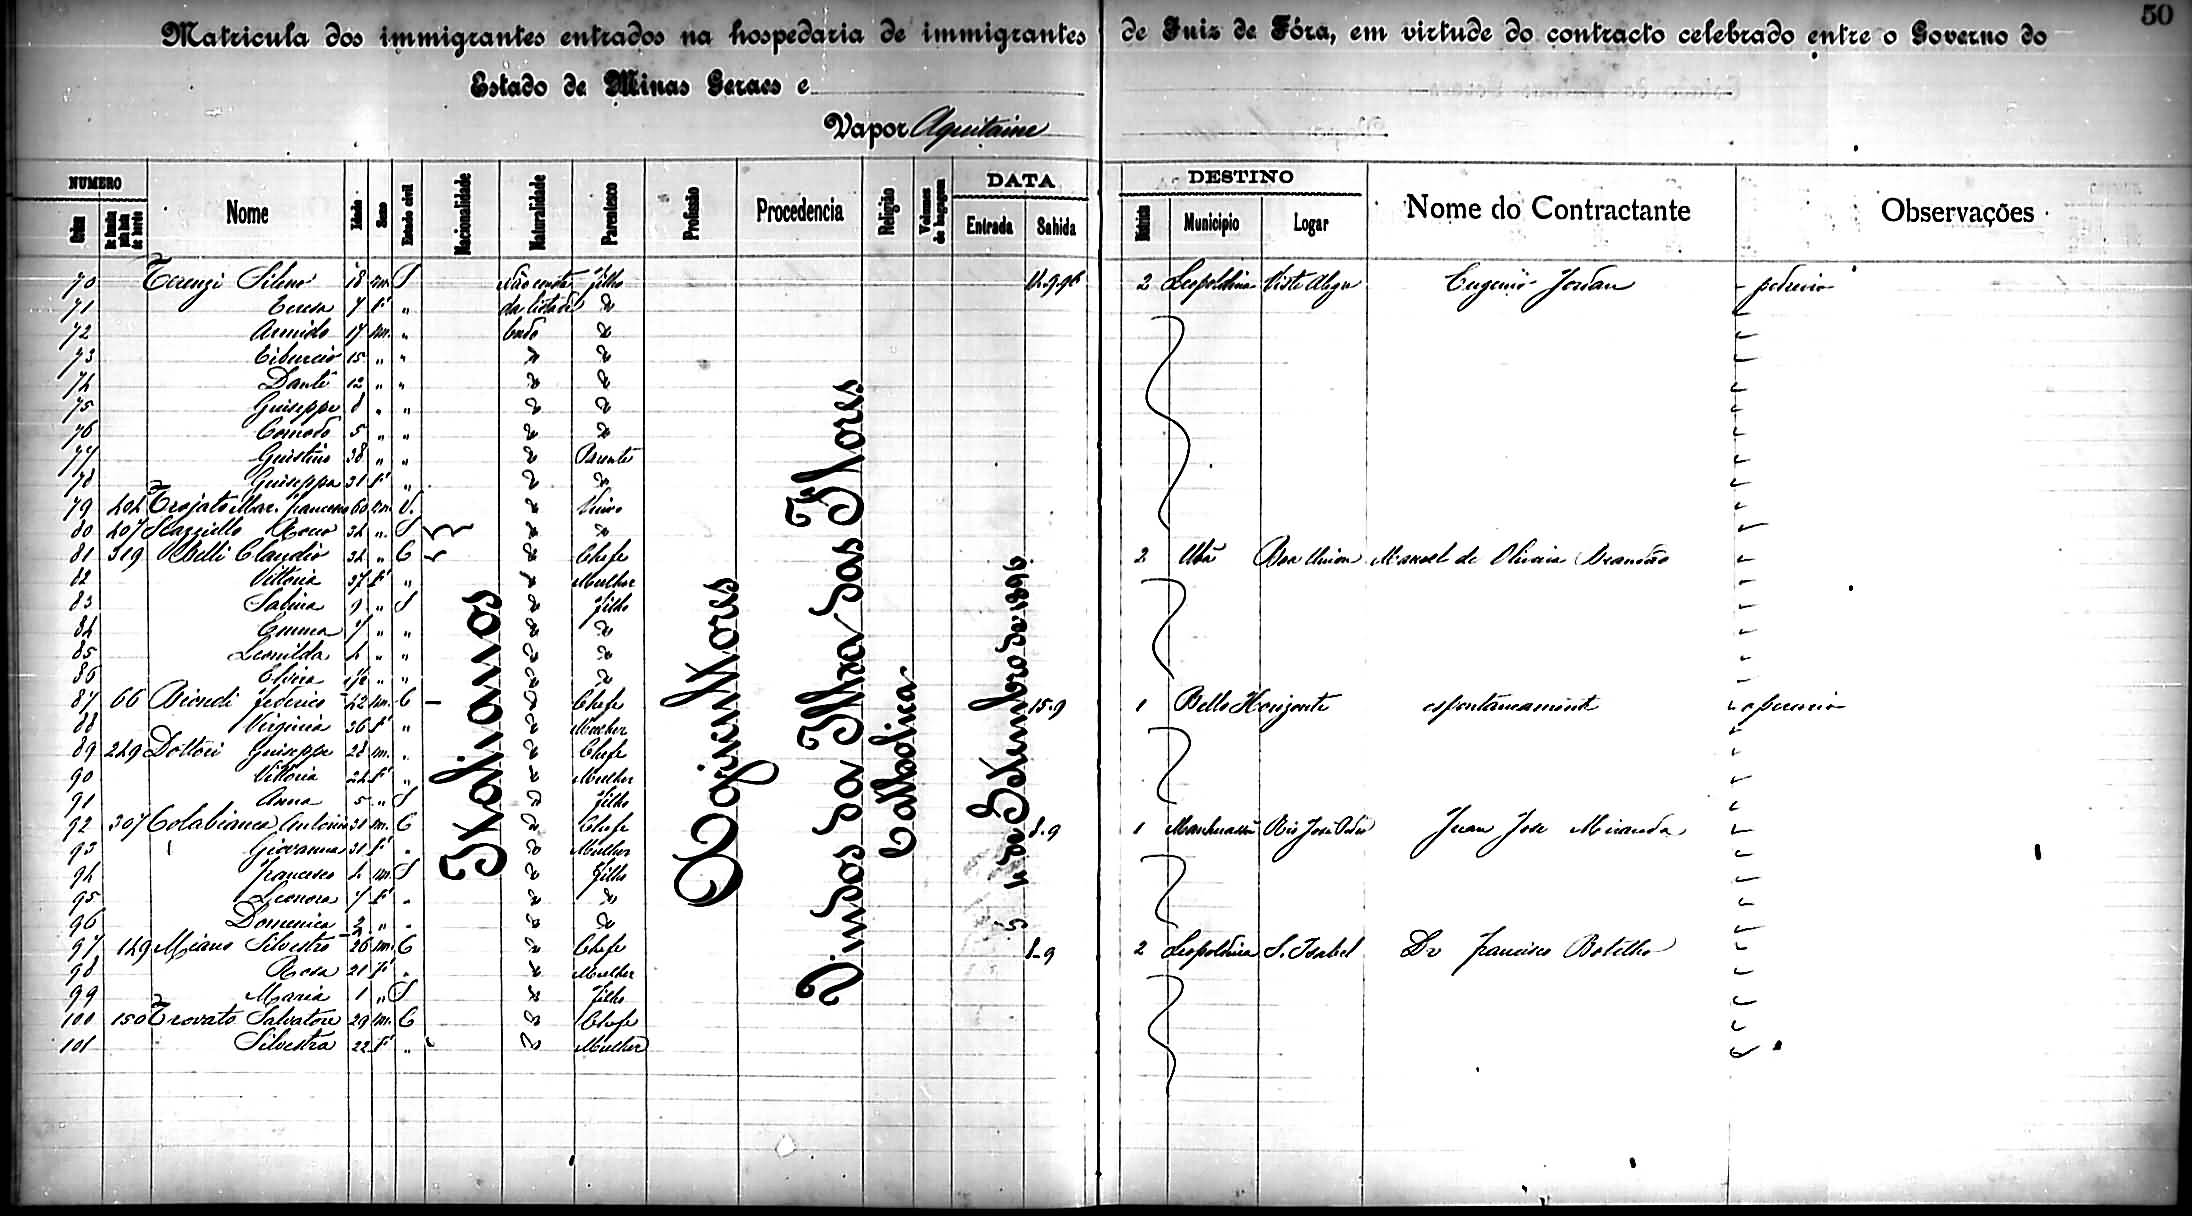 50
Matricula dos immigrantes entrados na hospedaria de immigrantes de Juiz de Fóra, em virtude do contracto celebrado entre o Governo do
Estado de Minas Geraes e
Vapor Aquitaine
NUMERO DATA DESTINO
Ordem Nome Idade Sexo Estado civil Nacionalidade Naturalidade Parentesco Profissão Procedencia Religião Volumes de bagagem Entrada Sahida Municipio Logar Nome do Contractante Observações
70 18 m. S Não consta filho 11.9.96 2 Leopoldina Eugenio Jordan
71 Teresa 7 F " da lista do "
72 Armido 17 m. " bordo "
73 Tiburcio 15 " " " "
74 Dante 12 " " " "
75 Guiseppe 8 " " " "
76 5 " " " "
77 38 " " " Parente
78 Guiseppa 31 F " " "
79 404 60 m. V. " Viuvo
80 407 Rocco 34 " S " "
81 319 Belli Claudio 34 " C " Chefe 2 Ubá Boa União Manoel de Oliveira Brandão
82 Vittoria 37 F " " Mulher
83 Sabina 9 " S " filho
84 Emma 7 " " " "
85 Leonilda 4 " " " "
86 Elvira 1/2 " " " "
87 66 Biondi Federico 42 m. C " Chefe 15-9 1 Bello Horizonte espontaneamente
88 Virginia 36 F " " Mulher
89 249 Dottori Guiseppe 28 m. " " Chefe
90 Vittoria 24 F " " Mulher
91 Anna 5 " S " filho
92 307 Colabianca Antonio 31 m. C " Chefe 8-9 1 Manhuassú Rio José Pedro Juan Jose Miranda
93 Giovanna 31 F " " Mulher
94 Francesco 4 m. S " filho
95 Leonora 7 F " " "
96 Domenica 2 " " " "
97 149 Miano Silvestro 26 m. C " Chefe 8-9 2 Leopoldina S. Isabel Dr Francisco Botelho
98 Rosa 21 F " " Mulher
99 Maria 1 " S " filho
100 150 Trovato Salvatore 29 m. C " Chefe
101 Silvestra 22 F " " Mulher
Italianos
Agricultores
Vindos da Ilha das Flores
Catholica
4 de Setembro de 1896